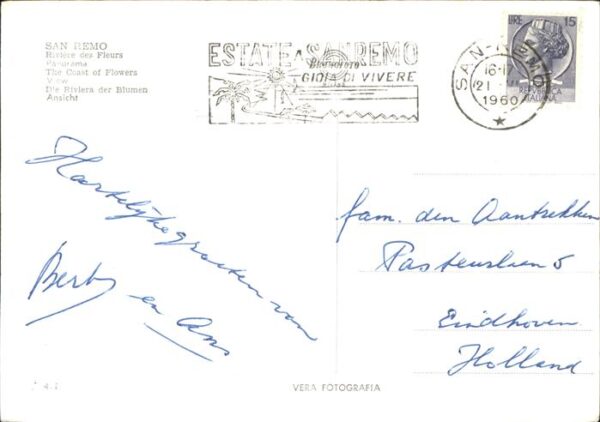 SAN REMO
Rivière des Fleurs
Panorama
The Coast of Flowers
View
Die Riviera der Blumen
Ansicht
ESTATE A SANREMO
GIOIA DI VIVERE
LIRE 15
REPVBBLICA
ITALIANA
SAN-REMO
21
1960
Hartelijke groeten van
Bert en Ans
fam. den Aantrekker
Pasteurlaan 5
Eindhoven
Holland
VERA FOTOGRAFIA